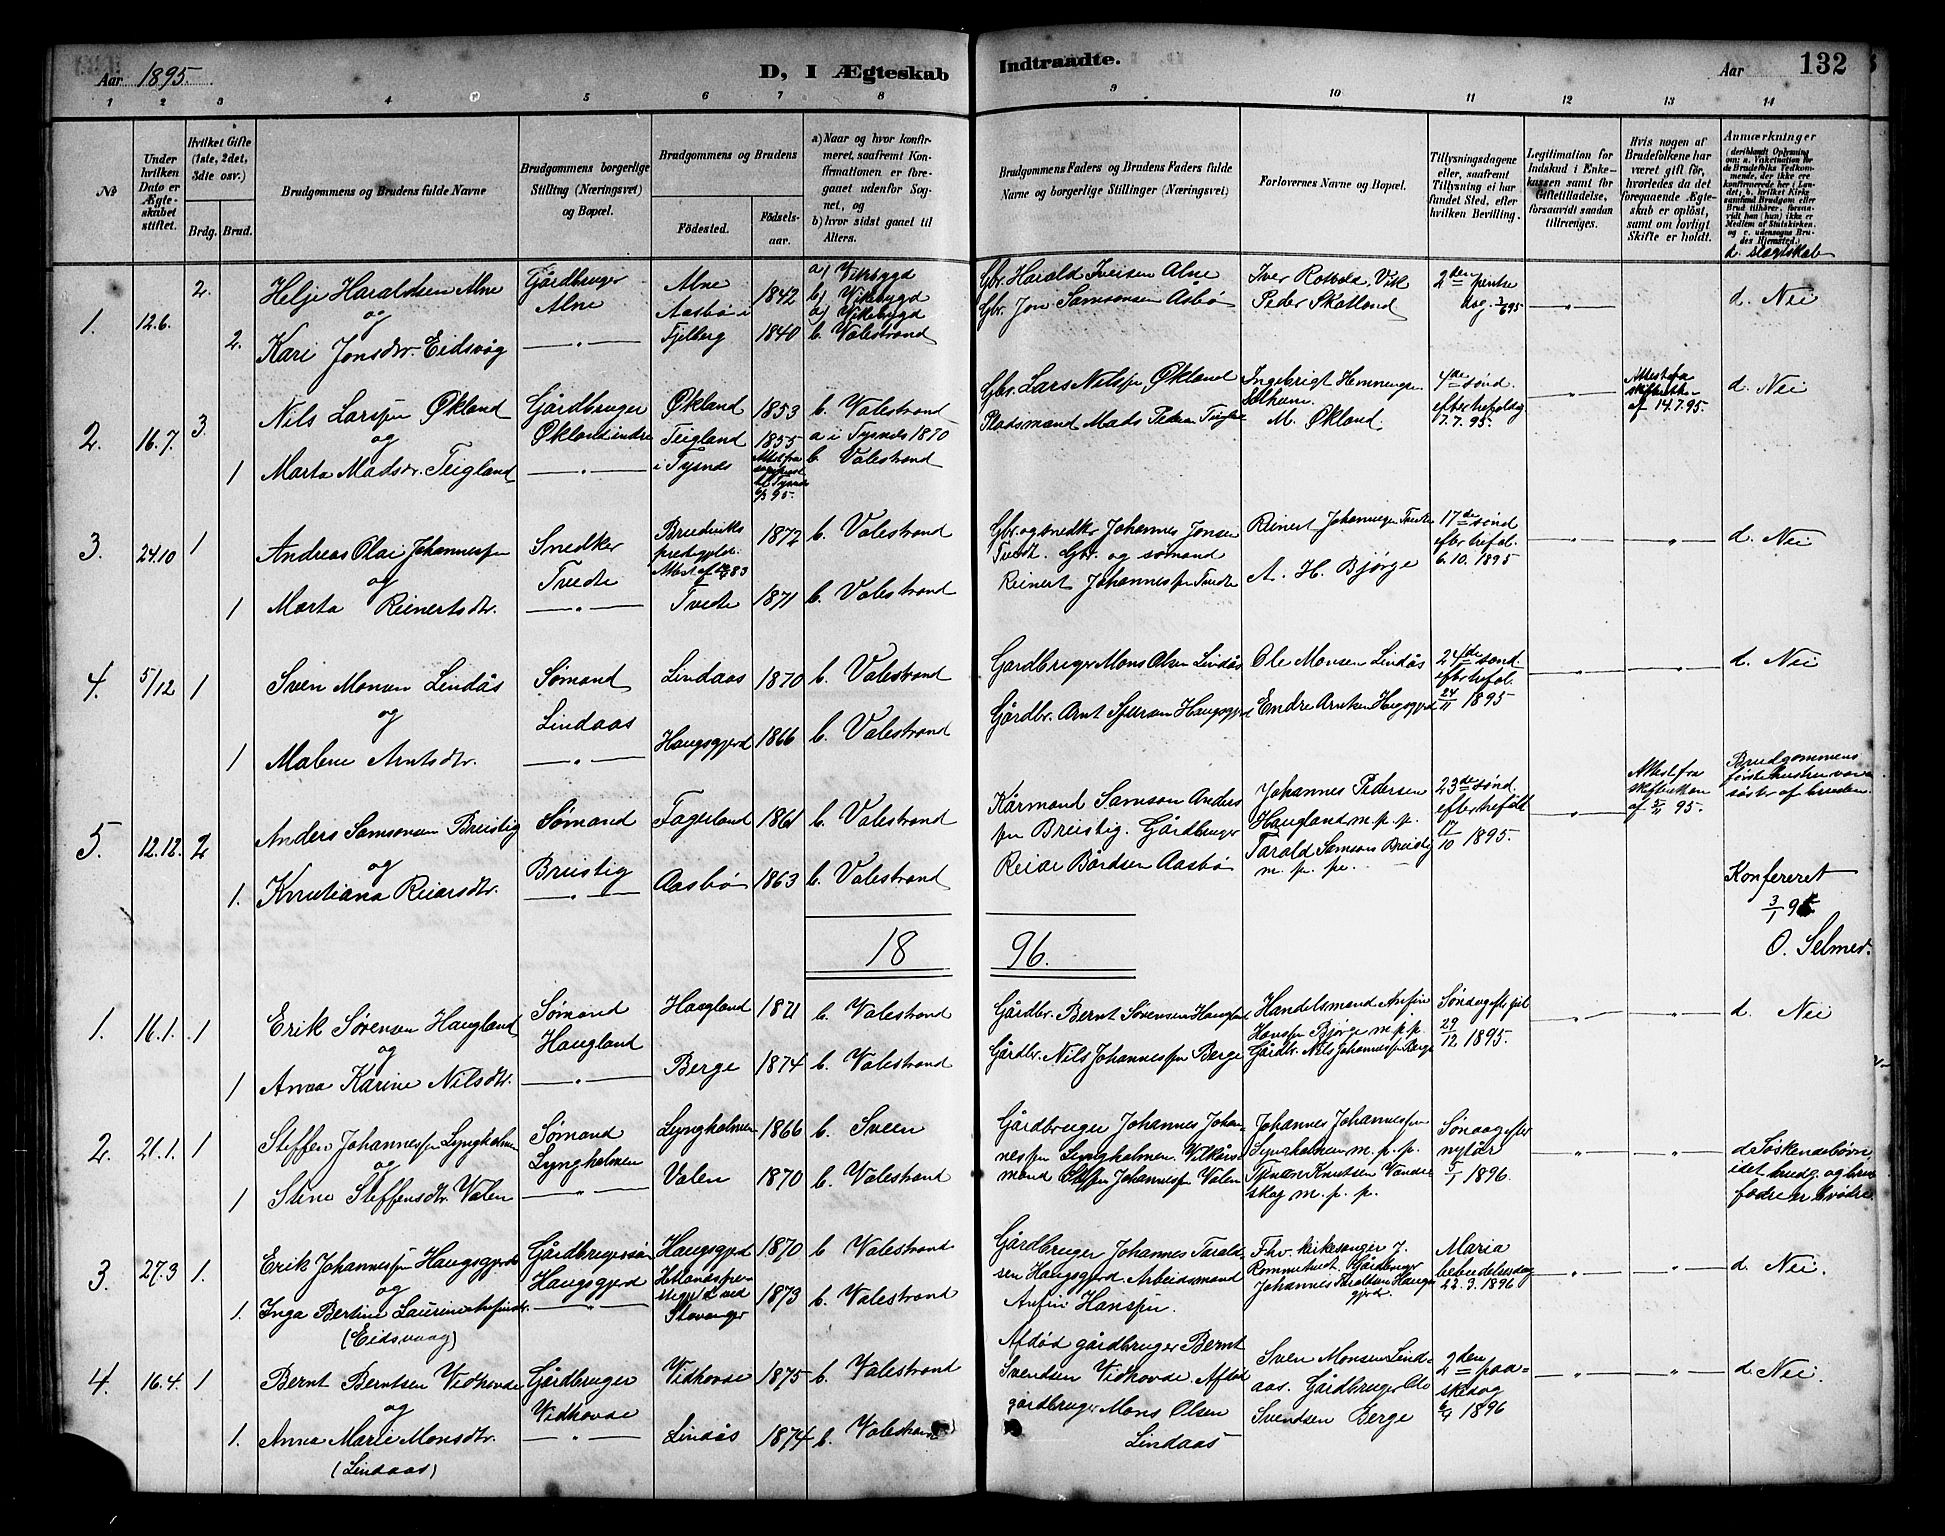 Aar 1895.
D, I Ægteskab Indtraadte.
Aar 132
1 2 3 4 5 6 7 8 9 10 11 12 13 14
No
Under hvilken Dato er Ægteskabet stiftet.
Hvilket Gifte (1ste, 2det, 3die osv.)
Brdg. Brud.
Brudgommens og Brudens fulde Navne
Brudgommens borgerlige Stilling (Næringsvei) og Bopæl.
Brudgommens og Brudens
Fødested. Fødselsaar.
a) Naar og hvor konfirmeret, saafremt Konfirmationen er foregaaet udenfor Sognet, og
b) hvor sidst gaaet til Alters.
Brudgommens Faders og Brudens Faders fulde Navne og borgerlige Stillinger (Næringsvei)
Forlovernes Navne og Bopæl.
Tillysningsdagene eller, saafremt Tillysning ei har fundet Sted, efter hvilken Bevilling.
Legitimation for Indskud i Enkekassen samt for Giftetilladelse, forsaavidt saadan tiltrænges.
Hvis nogen af Brudefolkene har været gift før, hvorledes da det foregaaende Ægteskab er opløst, samt om lovligt Skifte er holdt.
Anmærkninger
d. slægtskab
1. 12.6. 2. Helje Haraldsen Alne
og
2. Kari Jonsdtr. Eidsvåg
Gårdbruger
Alne
Alne 1842
Aasbø i Fjelberg 1840
a) Vikebygd
b) Vikebygd
a) Vikebygd
b. Valestrand
Gbr. Harald Iversen Alne
Gbr. Jon Samsonsen Åsbø
Iver Rotvold, Vik
Peder Skatland
2den pintse
dag 3/6 95
d. Nei
2. 16.7. 3. Nils Larssen Økland
og
1 Marta Madsdtr. Teigland
Gårdbruger
Økland indre
Økland 1853
Teigland 1855
i Tysnes
b. Valestrand
a i Tysnes 1870
b. Valestrand
Gbr. Lars Nilssen Økland
Pladsmand Mads
Ingebrigt Hemningsen
M. Økland.
4de sønd.
7.7.95.
Attest fra
skifteret
af 14.7.95.
d. Nei
3. 24.10 1 Andreas Olai Johannessen
og
1 Marta Reinertsdtr.
Snedker
Tvedte
1872
Tvedte 1871
b. Valestrand
b. Valestrand
Gbr. og snedker Johannes Jonsen
Tvedt. Gbr. og sømand
Reinert Johannessen Tvedte
Reinert Johannesen Tvedte
A. H. Bjørge
17de sønd
efter trefol.
6.10.1895
d. Nei
4. 5/12 1 Sven Monsen Lindås
og
1 Malene Arntsdtr.
Sømand
Lindaas
Lindaas 1870
Haugsgjerd 1866
b. Valestrand
b. Valestrand
Gardbruger Mons Olsen Lindås
Gårdbr. Arnt Haugsgjerd
Ole Monsen Lindås
Endre Arntsen Haugsgjerd
24de sønd.
efter trefol.
24/11 1895
d. Nei
5. 12.12. 2 Anders Samsonsen Breistig
og
1. Kristiana Reiarsdtr.
Sømand
Breistig
Fagerland 1861
Aasbø 1863
b. Valestrand
b. Valestrand
Kårmand Samson Anders
sen Breistig. Gårdbruger
Reiar Bårdsen Aasbø
Johannes Pedersen
Haugland m.p.p.
Tarald Samsons Breistig
m. p. p.
23de sønd
efter trefold
17/10 1895.
Attest fra
af 5/2 95
Brudgommens
første hustru var
søster af bruden.
Konfereret
3/1 96
O. Selmer.
18 96.
1. 16.1. 1 Erik Sørensen Haugland
og
1 Anna Karine Nilsdtr.
Sømand
Haugland
Haugland 1871
Berge 1874
b. Valestrand
b. Valestrand
Gårdbr. Bernt Sørensen Haugland
Gårdbr. Nils Johannessen Berge
Handelsmand Anfin
Hanssen Bjørge m.p.p.
Gårdbr. Nils Johannessen Berge
Søndag eft. jul
29/12 1895.
d. Nei
2. 21.1. 1 Steffen Johannessen Lyngholmen
og
1 Stine Steffensdtr. Valen
Sømand
Lyngholmen
Lyngholmen 1866
Valen 1870
b. Sveen
b. Valestrand
Gårdbruger Johannes Johan-
nessen Lyngholmen. Vilkårs-
mand Steffen Johannessen Valen
Johannes Johannessen
Lyngholmen m.p.p.
Knutsen Vande-
skog m. p. p.
Søndag efter
nytår
5/1 1896.
d Søskendebørn
idet brudg. og brud
fødre er brødre
3. 27.3 1. Erik Johannessen Haugsgjerd
og
1. Inga Bertine Laurine Anfinsdtr.
(Eidsvaag)
Gårdbrugersøn
Haugsgjerd
Haugsgjerd 1870
Hetlands pre-
stegjeld ved
Stavanger 1873
b. Valestrand
b. Valestrand
Gårdbruger Johannes Tarald-
sen Haugsgjerd. Arbeidsmand
Anfin Hanssen.
Fhv. kirkesanger J.
Rommetvedt. Gårdbruger
Johannes Taraldsen Haugs-
gjerd.
Maria
bebudelsesdag
22.3.1896
d. Nei.
4. 16.4. 1 Bernt Berntsen Vidhovde
og
1. Anna Marie Monsdtr.
(Lindaas)
Gårdbruger
Vidhovde
Vidhovde 1875
Lindås 1874
b. Valestrand
b. Valestrand
Afdød gårdbruger Bernt
Svendsen Vidhovde. Afdød
gårdbruger Mons Olsen
Lindaas
Sven Monsen Lind-
aas. Gårdbruger Ole
Svendsen Berge
2den paa-
skedag
6/4 1896
d. Nei.